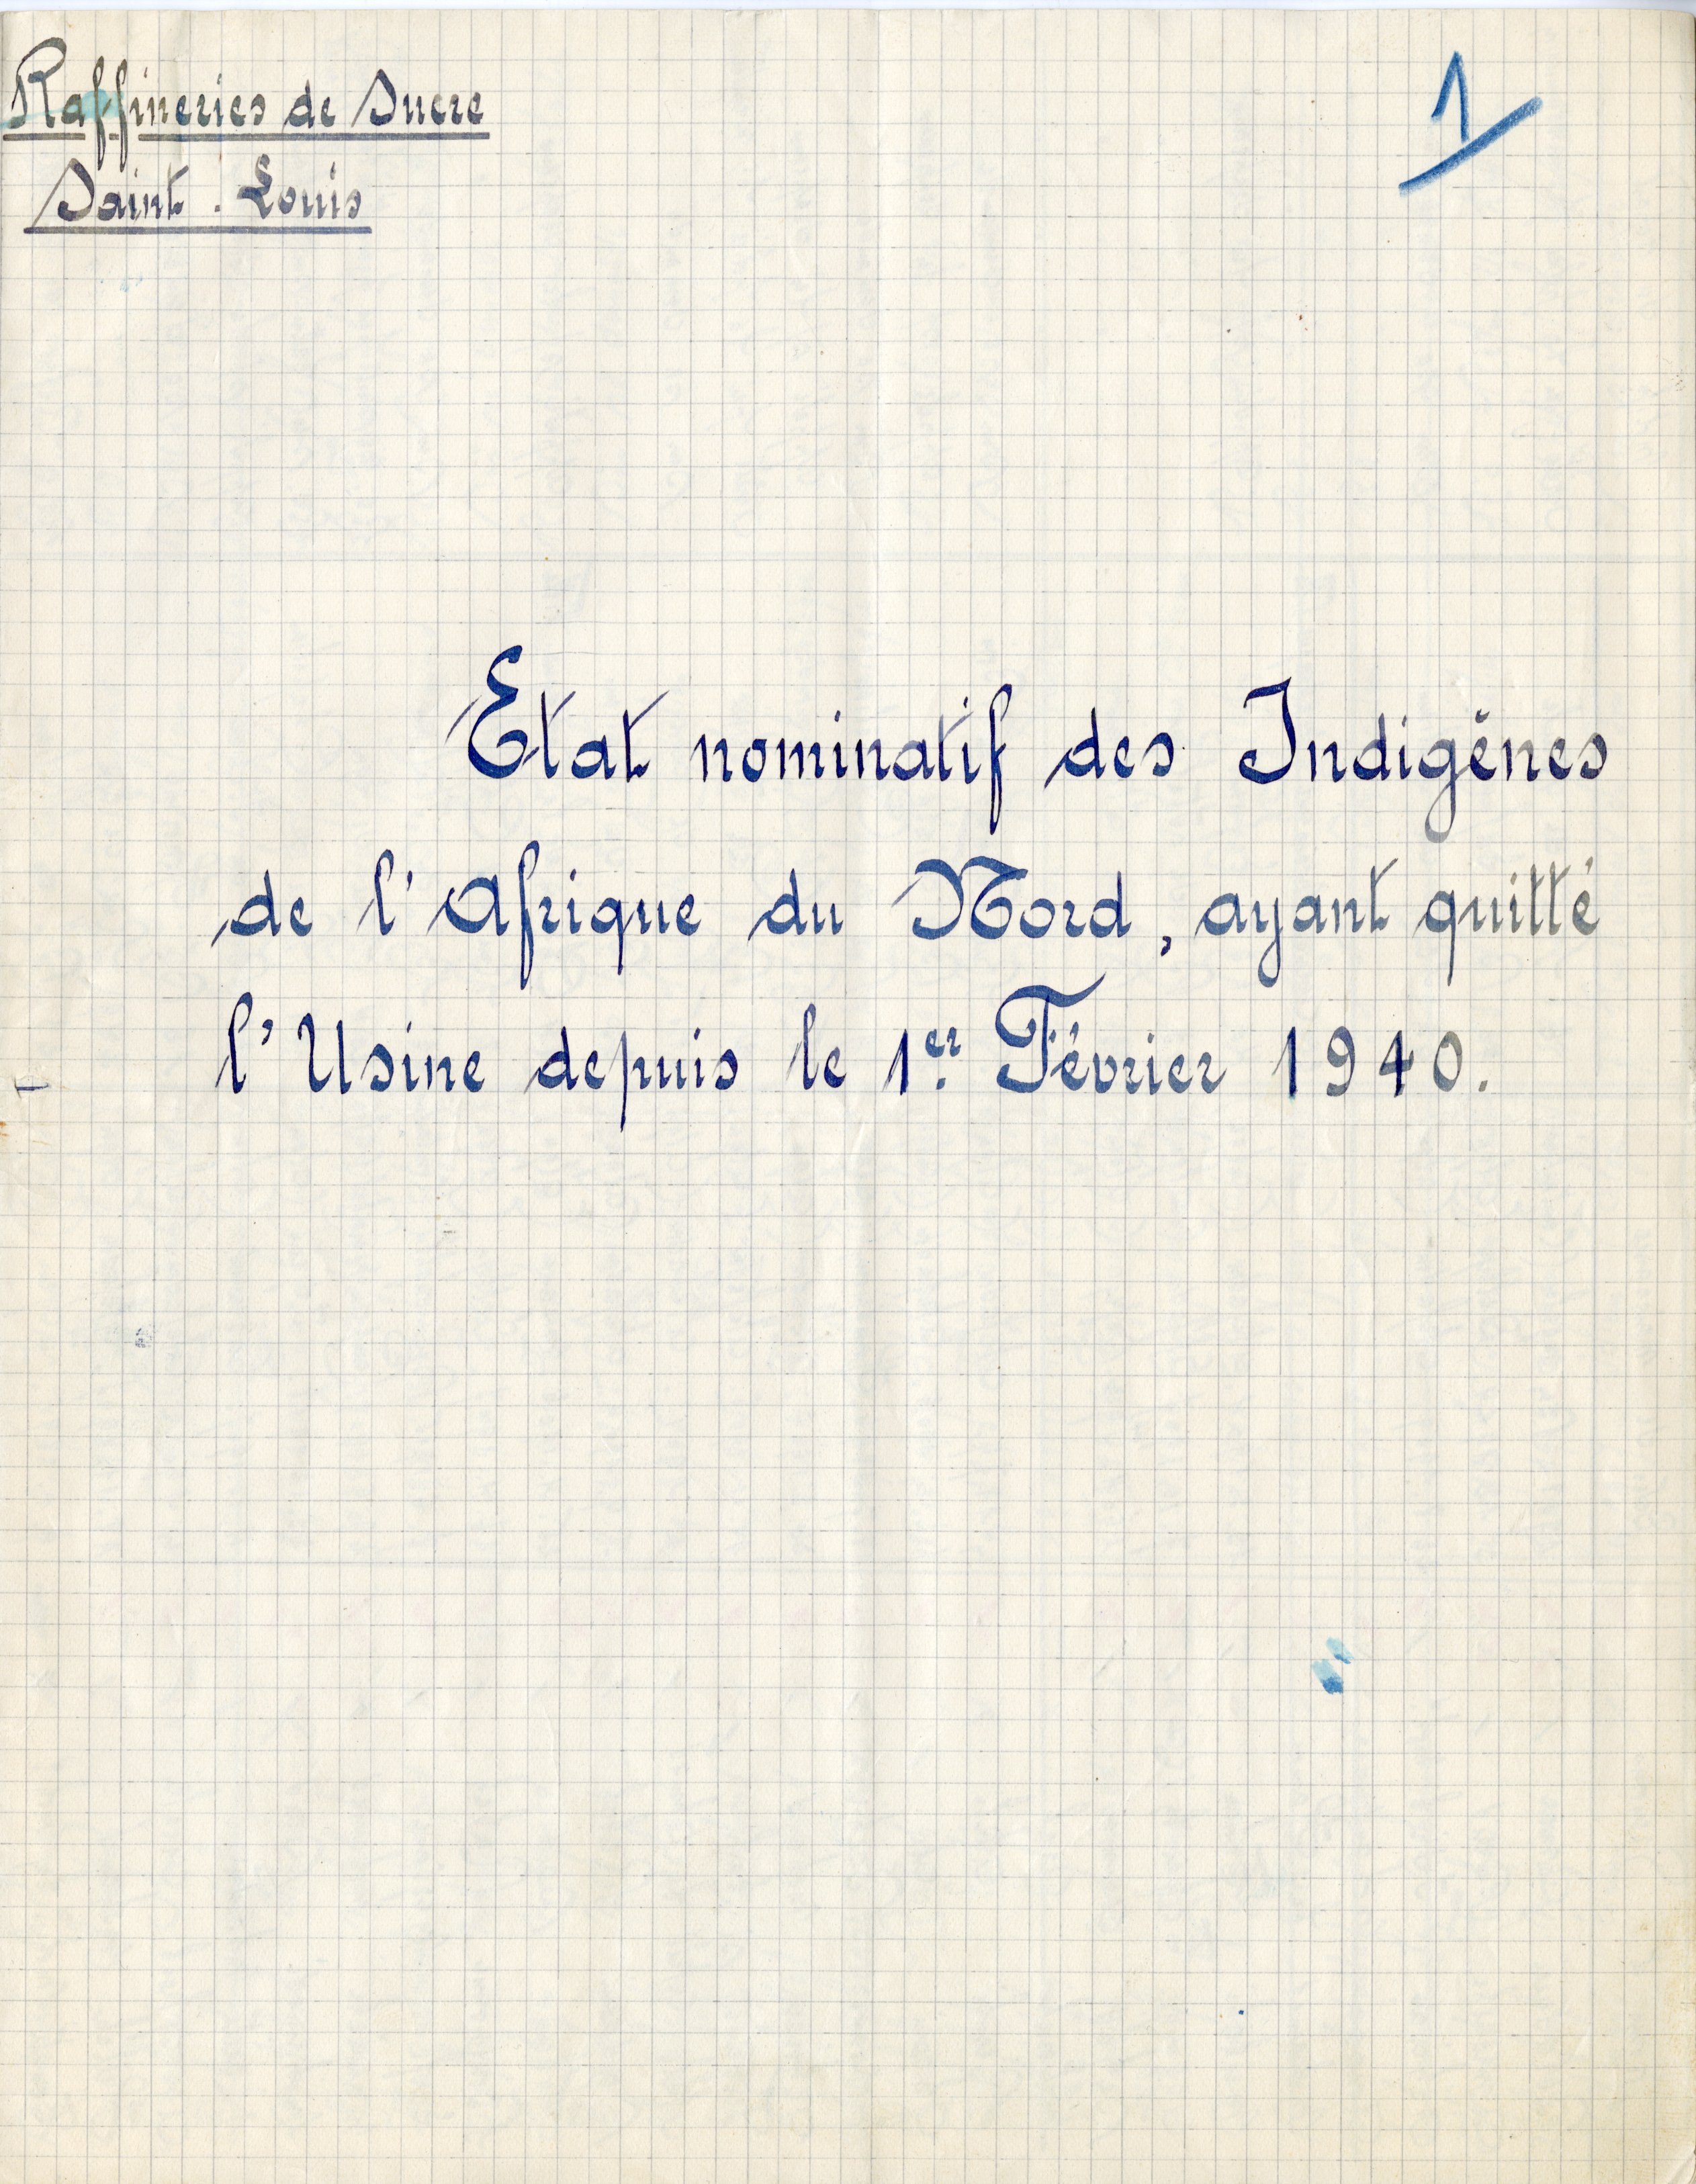 Raffineries de Sucre
Saint-Louis
1
Etat nominatif des Indigènes
de l'Afrique du Nord, ayant quitté
l'Usine depuis le 1er Février 1940.